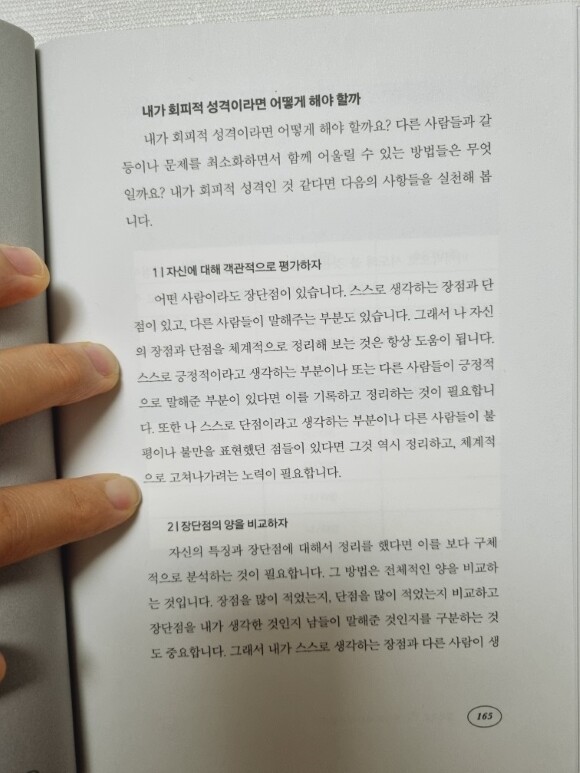 내가 회피적 성격이라면 어떻게 해야 할까
내가 회피적 성격이라면 어떻게 해야 할까요? 다른 사람들과 갈
등이나 문제를 최소화하면서 함께 어울릴 수 있는 방법들은 무엇
일까요? 내가 회피적 성격인 것 같다면 다음의 사항들을 실천해 봅
니다.
1 | 자신에 대해 객관적으로 평가하자
어떤 사람이라도 장단점이 있습니다. 스스로 생각하는 장점과 단
점이 있고, 다른 사람들이 말해주는 부분도 있습니다. 그래서 나 자신
의 장점과 단점을 체계적으로 정리해 보는 것은 항상 도움이 됩니다.
스스로 긍정적이라고 생각하는 부분이나 또는 다른 사람들이 긍정적
으로 말해준 부분이 있다면 이를 기록하고 정리하는 것이 필요합니
다. 또한 나 스스로 단점이라고 생각하는 부분이나 다른 사람들이 불
평이나 불만을 표현했던 점들이 있다면 그것 역시 정리하고, 체계적
으로 고쳐나가려는 노력이 필요합니다.
2 | 장단점의 양을 비교하자
자신의 특징과 장단점에 대해서 정리를 했다면 이를 보다 구체
적으로 분석하는 것이 필요합니다. 그 방법은 전체적인 양을 비교하
는 것입니다. 장점을 많이 적었는지, 단점을 많이 적었는지 비교하고
장단점을 내가 생각한 것인지 남들이 말해준 것인지를 구분하는 것
도 중요합니다. 그래서 내가 스스로 생각하는 장점과 다른 사람이 생
165